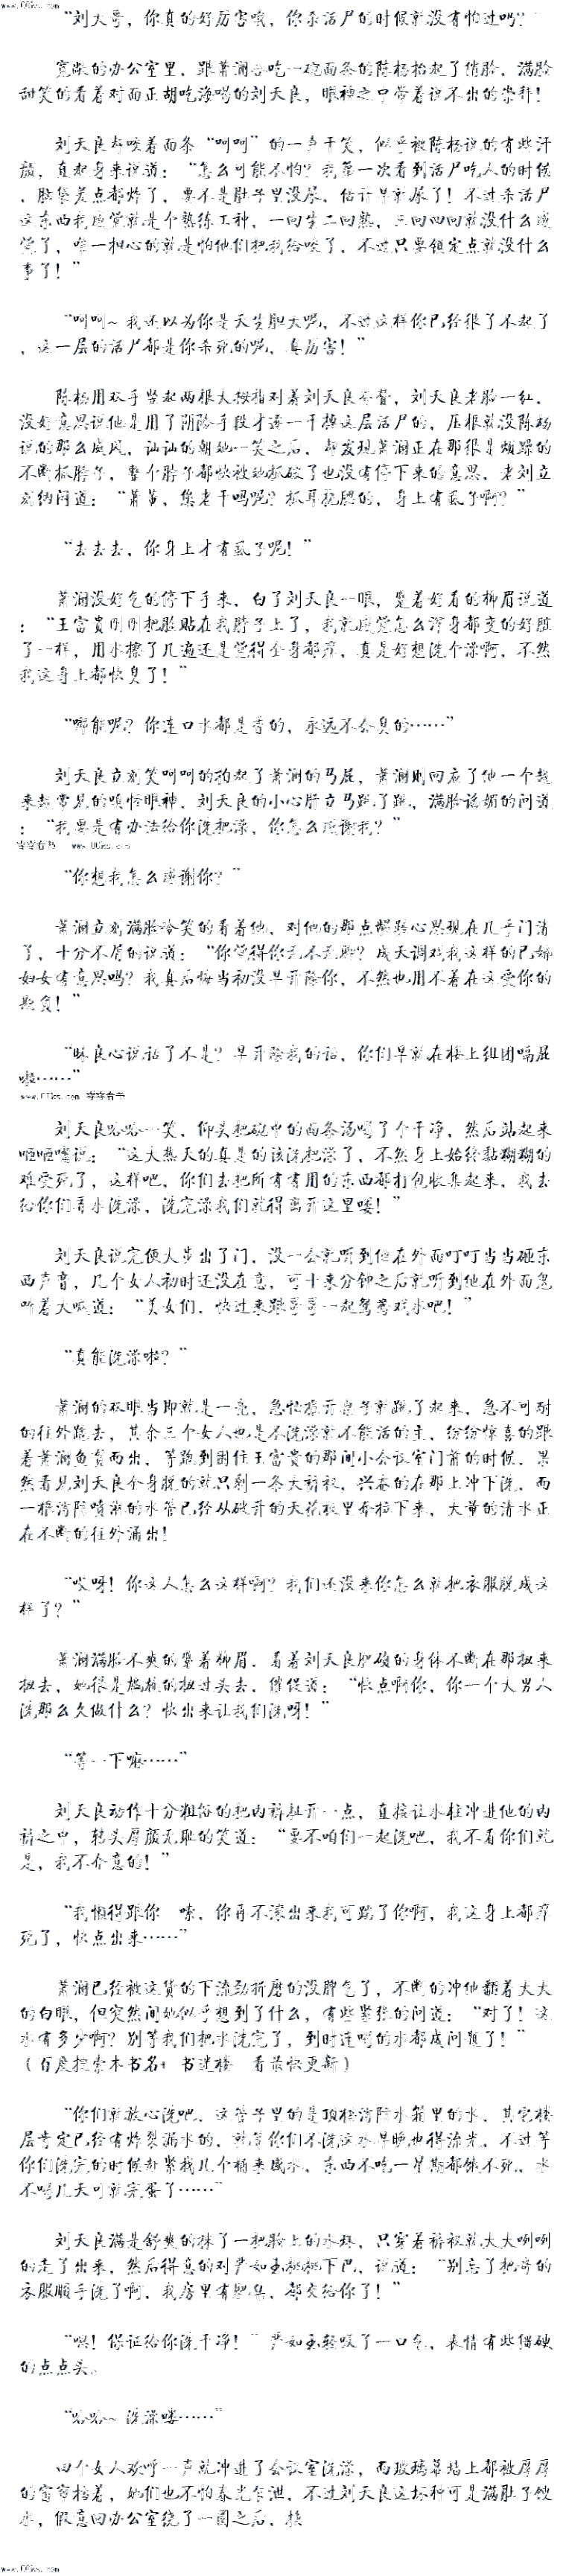 www.66ks.com
“刘大哥，你真的好厉害哦，你杀活尸的时候就没有怕过吗？”
宽敞的办公室里，跟萧澜合吃一碗面条的陈杨抬起了俏脸，满脸
甜笑的看着对面正胡吃海喝的刘天良，眼神之中带着说不出的崇拜！
刘天良却咬着面条“呵呵”的一声干笑，似乎被陈杨说的有些汗
颜，直起身来说道：“怎么可能不怕？我第一次看到活尸吃人的时候
，脑袋差点都炸了，要不是肚子里没尿，估计早就尿了！不过杀活尸
这东西我感觉就是个熟练工种，一回生二回熟，三回四回就没什么感
觉了，唯一担心的就是怕他们把我给咬了，不过只要镇定点就没什么
事了！”
“呵呵~我还以为你是天生胆大呢，不过这样你已经很了不起了
，这一层的活尸都是你杀死的呢，真厉害！”
陈杨用双手竖起两根大拇指对着刘天良夸赞，刘天良老脸一红，
没好意思说他是用了阴险手段才逐一干掉这层活尸的，压根就没陈杨
说的那么威风，讪讪的朝她一笑之后，却发现萧澜正在那很是烦躁的
不断抓脖子，整个脖子都快被她抓破了也没有停下来的意思，老刘立
刻纳闷道：“萧董，您老干吗呢？抓耳挠腮的，身上有虱子啊？”
“去去去，你身上才有虱子呢！”
萧澜没好气的停下手来，白了刘天良一眼，蹙着好看的柳眉说道
：“王富贵刚刚把脸贴在我脖子上了，我就感觉怎么浑身都变的好脏
了一样，用水擦了几遍还是觉得全身都痒，真是好想洗个澡啊，不然
我这身上都快臭了！”
“哪能呢？你连口水都是香的，永远不会臭的……”
刘天良立刻笑呵呵的拍起了萧澜的马屁，萧澜则回应了他一个越
来越常见的嗔怪眼神，刘天良的小心肝立马跳了跳，满脸谄媚的问道
：“我要是有办法给你洗把澡，你怎么感谢我？”
www.66ks.com
“你想我怎么感谢你？”
萧澜立刻满脸冷笑的看着他，对他的那点龌龊心思现在几乎门清
了，十分不屑的说道：“你觉得你无不无聊？成天调戏我这样的已婚
妇女有意思吗？我真后悔当初没早开除你，不然也用不着在这受你的
欺负！”
“昧良心说话了不是？早开除我的话，你们早就在楼上组团嗝屁
啦……”
www.66ks.com
刘天良哈哈一笑，仰头把碗中的面条汤喝了个干净，然后站起来
咂咂嘴说：“这大热天的真是的该洗把澡了，不然身上始终黏糊糊的
难受死了，这样吧，你们去把所有有用的东西都打包收集起来，我去
给你们弄水洗澡，洗完澡我们就得离开这里喽！”
刘天良说完便大步出了门，没一会就听到他在外面叮叮当当砸东
西声音，几个女人初时还没在意，可十来分钟之后就听到他在外面忽
听着大喊道：“美女们，快过来跟哥哥一起鸳鸯戏水吧！”
“真能洗澡啦？”
萧澜的双眼当即就是一亮，急忙推开桌子就跳了起来，急不可耐
的往外跑去，其余三个女人也是不洗澡就不能活的主，纷纷惊喜的跟
着萧澜鱼贯而出，等跑到困住王富贵的那间小会议室门前的时候，果
然看见刘天良全身脱的就只剩一条大裤衩，兴奋的在那上冲下洗，而
一根消防喷淋的水管已经从破开的天花板里耷拉下来，大量的清水正
在不断的往外涌出！
“哎呀！你这人怎么这样啊？我们还没来你怎么就把衣服脱成这
样了？”
萧澜满脸不爽的蹙着柳眉，看着刘天良肥硕的身体不断在那扭来
扭去，她很是尴尬的扭过头去，催促道：“快点啊你，你一个大男人
洗那么久做什么？快出来让我们洗呀！”
“等一下嘛……”
刘天良动作十分粗俗的把内裤扯开一点，直接让水柱冲进他的内
裤之中，转头厚颜无耻的笑道：“要不咱们一起洗吧，我不看你们就
是，我不介意的！”
“我懒得跟你 嗦，你再不滚出来我可踹了你啊，我这身上都痒
死了，快点出来……”
萧澜已经被这货的下流劲折磨的没脾气了，不断的冲他翻着大大
的白眼，但突然间她似乎想到了什么，有些紧张的问道：“对了！这
水有多少啊？别等我们把水洗完了，到时连喝的水都成问题了！”
（百度搜索本书名+ 书迷楼 看最快更新）
“你们就放心洗吧，这管子里的是顶楼消防水箱里的水，其它楼
层肯定已经有炸裂漏水的，就算你们不洗这水早晚也得流光，不过等
你们洗完的时候赶紧找几个桶来盛水，东西不吃一星期都饿不死，水
不喝几天可就完蛋了……”
刘天良满是舒爽的抹了一把脸上的水珠，只穿着裤衩就大大咧咧
的走了出来，然后得意的对严如玉挑挑下巴，说道：“别忘了把哥的
衣服顺手洗了啊，我房里有肥皂，都交给你了！”
“哄！保证给你洗干净！”严如玉轻吸了一口气，表情有些僵硬
的点点头。
“哈哈~洗澡喽……”
四个女人欢呼一声就冲进了会议室洗澡，而玻璃幕墙上都被厚厚
的窗帘挡着，她们也不怕春光乍泄，不过刘天良这坏种可是满肚子馊
水，假意回办公室绕了一圈之后，挨
www.66ks.com